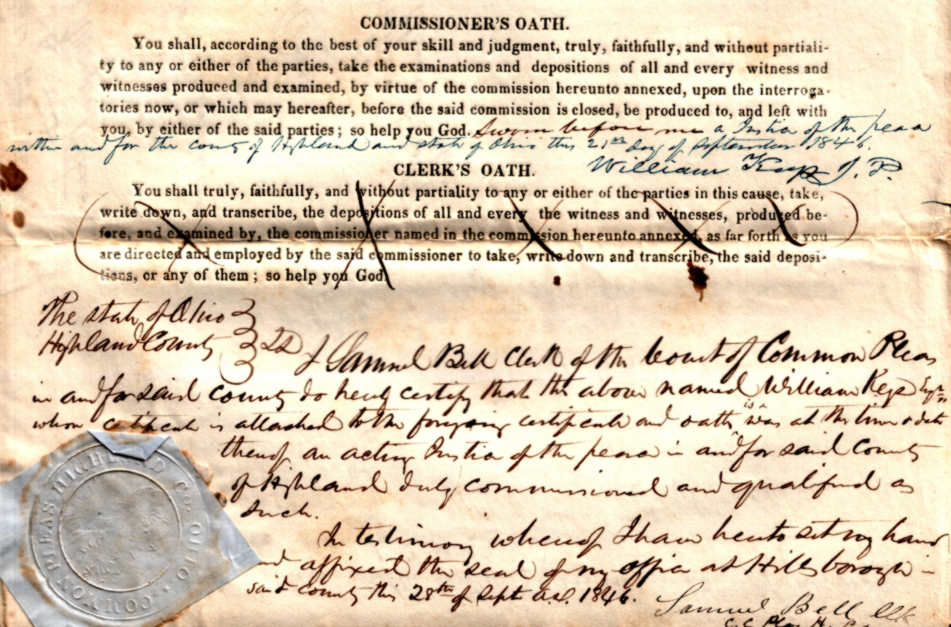 COMMISSIONER'S OATH.
You shall, according to the best of your skill and judgment, truly, faithfully, and without partiali-
ty to any or either of the parties, take the examinations and depositions of all and every witness and
witnesses produced and examined, by virtue of the commission hereunto annexed, upon the interroga-
tories now, or which may hereafter, before the said commission is closed, be produced to, and left with
you, by either of the said parties; so help you God. Sworn before me a Justice of the peace
within and for the county of Highland and state of Ohio this 21st day of September 1846.
William Keys J. P.
CLERK'S OATH.
You shall truly, faithfully, and without partiality to any or either of the parties in this cause, take,
write down, and transcribe, the depositions of all and every the witness and witnesses, produced be-
fore, and examined by, the commissioner named in the commission hereunto annexed, as far forth as you
are directed and employed by the said commissioner to take, write down and transcribe, the said deposi-
tions, or any of them; so help you God.
The state of Ohio
Highland County ss I Samuel Bell Clerk of the Court of Common Pleas
in and for said County do hereby certify that the above named William Keys Esqr
whose certificate is attached to the foregoing certificate and oath, was at the time & date
thereof an acting Justice of the peace in and for said County
of Highland duly commissioned and qualified as
such.
In testimony whereof I have hereto set my hand
and affixed the seal of my office at Hillsborough
said County this 28th of Sept A.D. 1846.
Samuel Bell Clk
COMMON PLEAS HIGHLAND CO. OHIO